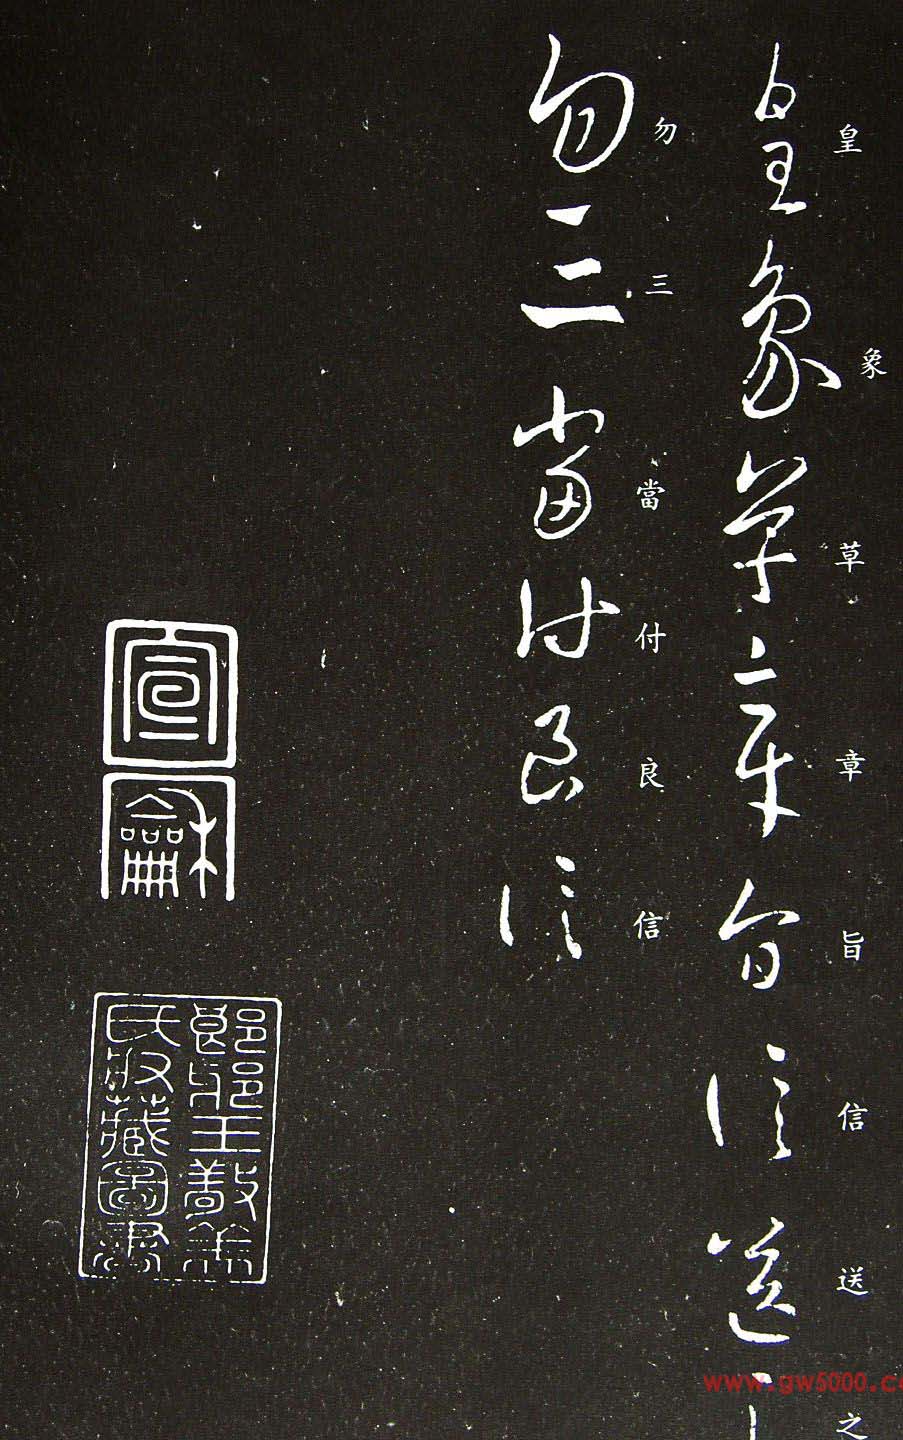 皇象草章旨信送之
皇象草章旨信送之
勿三當付良信
勿三當付良信
宣龢
郎邪王敬美
氏收藏圖書
www.gw5000.c